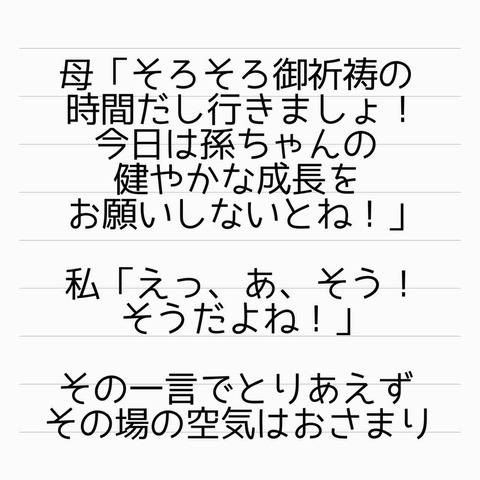 母「そろそろ御祈祷の
時間だし行きましょ！
今日は孫ちゃんの
健やかな成長を
お願いしないとね！」
私「えっ、あ、そう！
そうだよね！」
その一言でとりあえず
その場の空気はおさまり